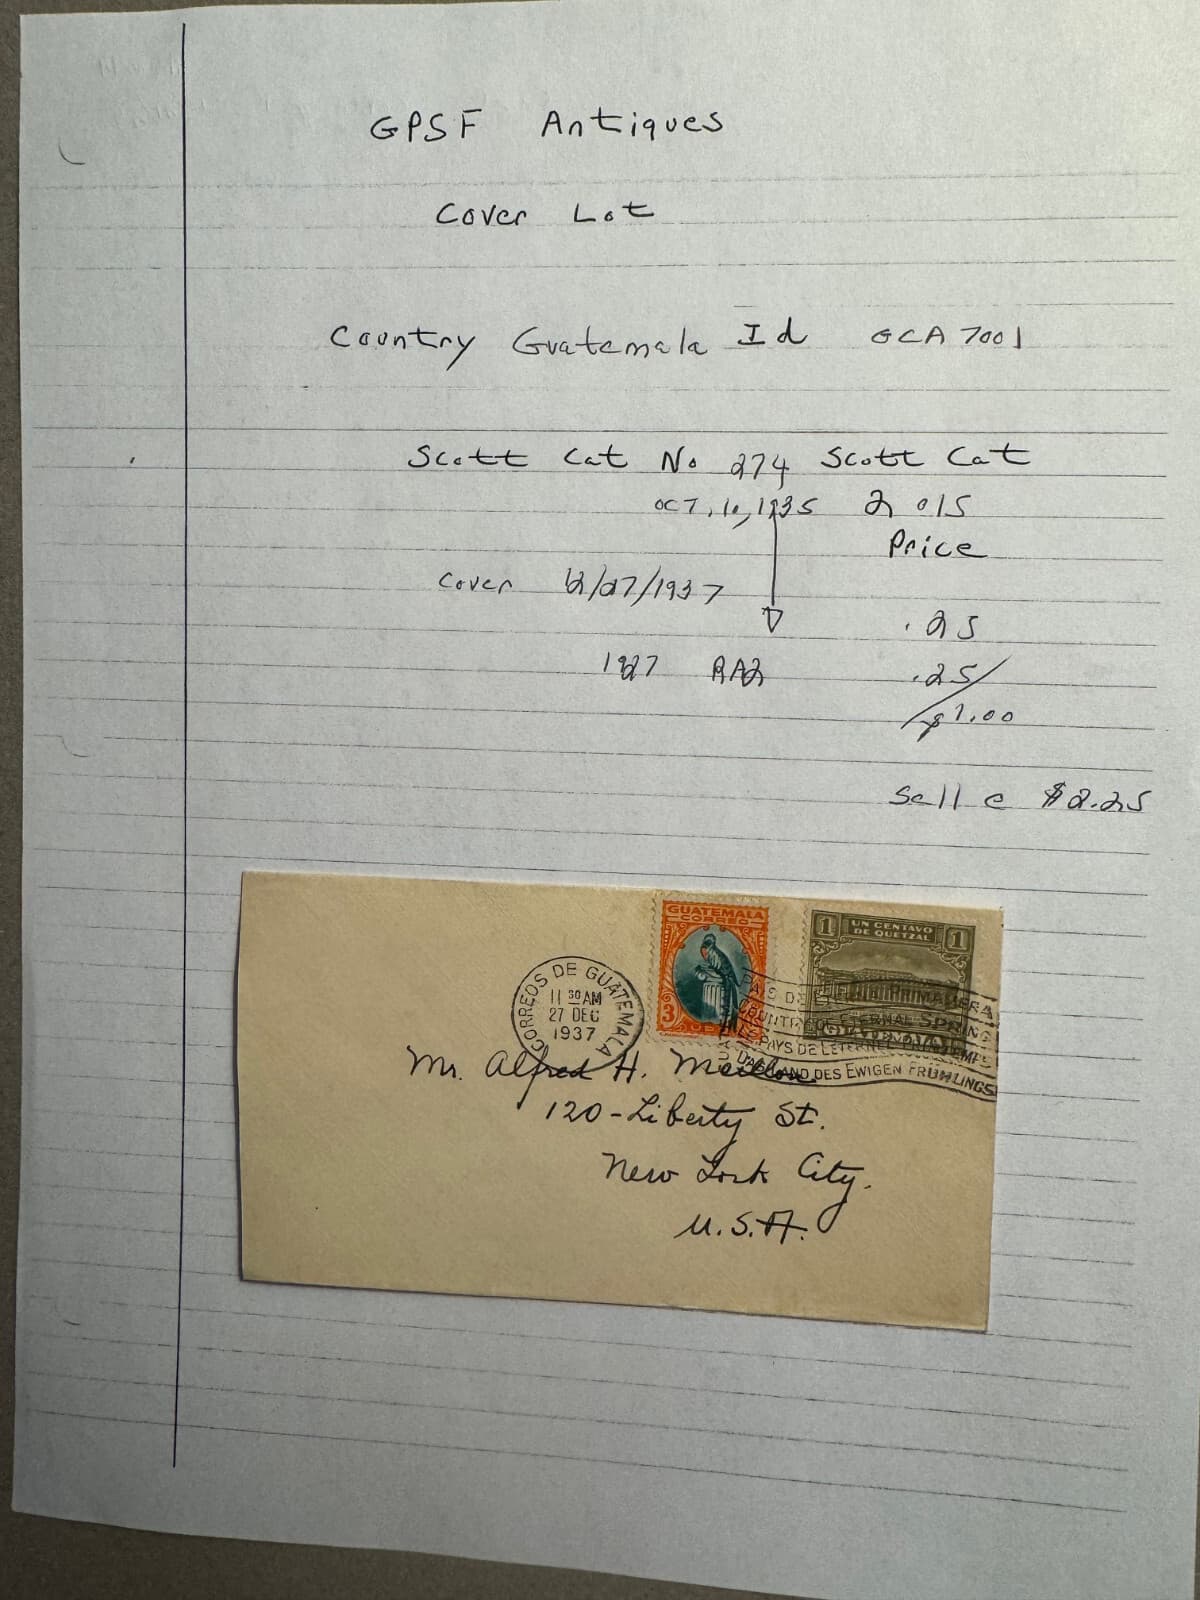 GPSF Antiques
Cover Lot
Country Guatemala Id GCA 7001
Scott Cat No 274 Scott Cat
OCT, 10, 1935 2015
Price
Cover 12/27/1937
.25
1927 RA2 .25
$1.00
Sell @ $2.25
GUATEMALA
CORREO
3
1 UN CENTAVO DE QUETZAL 1
GUATEMALA
CORREOS DE GUATEMALA
11 30 AM
27 DEC
1937
PAIS DE ETERNA PRIMAVERA
COUNTRY OF ETERNAL SPRING
PAYS DE L'ETERNEL PRINTEMPS
DAS LAND DES EWIGEN FRÜHLINGS
Mr. Alfred H.
120-Liberty St.
New York City.
U.S.A.